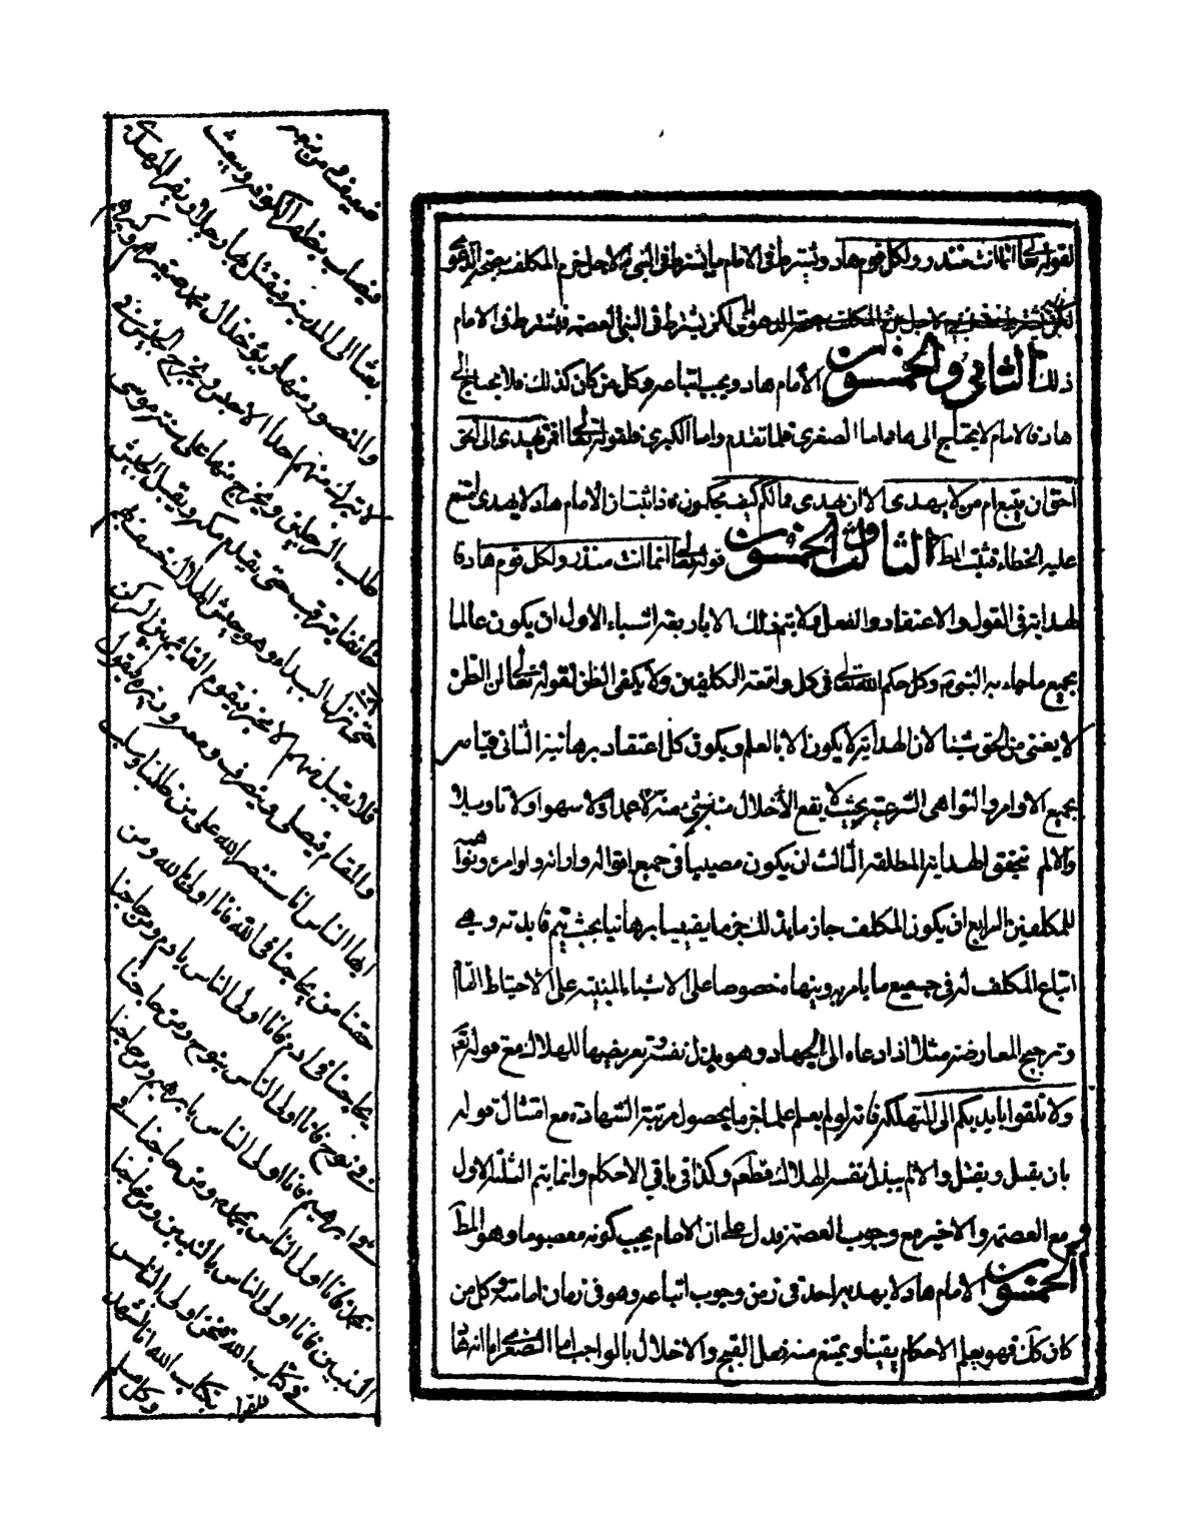 لقوله تعالى انما انت منذر ولكل قوم هاد ويشترط فى الامام ما يشترط فى النبى لاجل المكلف
لكن يشترط فى النبى العصمة فيشترط فى الامام
ذلك الثانى والخمسون الامام هاد ويجب اتباعه وكل من كان كذلك فلا يحتاج الى
هاد فالامام لا يحتاج الى هاد اما الصغرى فلما تقدم واما الكبرى فلقوله تعالى افمن يهدى الى الحق
احق ان يتبع ام من لا يهدى الا ان يهدى فما لكم كيف تحكمون اذا ثبت ان الامام هاد لا يهدى امتنع
عليه الخطاء فثبت المط الثالث والخمسون قوله تعالى انما انت منذر ولكل قوم هاد فا
لهداية فى القول والاعتقاد والفعل ولا يتم ذلك الا باربعة اشياء الاول ان يكون عالما
بجميع ما جاء به النبى وكل حكم الله تعالى فى كل واقعة للمكلفين ولا يكفى الظن لقوله تعالى ان الظن
لا يغنى من الحق شيئا لان الهداية لا يكون الا بالعلم ويكون كل اعتقاد برهانية الثانى قيامه
بجميع الاوامر والنواهى الشرعية بحيث لا يقع الأخلال منه بشئ منه لا عمدا ولا سهوا ولا تاويلا
والا لم تحقق الهداية المطلقة الثالث ان يكون مصيبا فى جميع اقواله وارائه واوامره ونواهيه
للمكلفين الرابع ان يكون المكلف جازما بذلك جزما يقينيا برهانيا بحيث يتم فايدته وهى
اتباع المكلف له فى جميع ما يامر به وينهاه خصوصا على الاشياء المبنية على الاحتياط التام
وترجيح المعارضة مثلا اذا دعاه الى الجهاد وهو بذل نفسه وتعريضها للهلاك مع قوله تعالى
ولا تلقوا بايديكم الى التهلكة فانه لو لم يعلم علما جزما بحصول مرتبة الشهادة مع امتثال قوله
بان يقتل ويقتل والا لم يبذل نفسه للهلاك قطعا وكذا فى باقى الاحكام وانما يتم الثلثة الاول
مع العصمة والاخير مع وجوب العصمة فدل على ان الامام يجب كونه معصوما وهو المط
الخمسون الامام هاد لا يهديه احد فى زمن وجوب اتباعه وهو فى زمان امامته وكل من
كان كك فهو يعلم الاحكام يقينا ويمتنع منه فعل القبيح والاخلال بالواجب اما الصغرى اما انه هاد
فيصاب بظهر الكوفة ويبعث
بعثا الى المدينة فيقتل بها رجلا ويفر المهدى
والمنصور منها ويؤخذ ال محمد صغيرهم وكبيرهم
لا يترك منهم احدا الا حبس ويخرج الجيش فى
طلب الرجلين ويخرج منها على سنة موسى
خائفا يترقب حتى يقدم مكة ويقبل الجيش
حتى تنزل البيداء وهو جيش الهلاك فيخسف بهم
فلا يفلت منهم الا مخبر فيقوم القائم بين الركن
والمقام فيصلى وينصرف ومعه وزيره فيقول
ايها الناس انا نستنصر الله على من ظلمنا وسلب
حقنا من يحاجنا فى الله فانا اولى بالله ومن
يحاجنا فى ادم فانا اولى الناس بادم ومن حاجنا
فى نوح فانا اولى الناس بنوح ومن حاجنا
فى ابرهيم فانا اولى الناس بابرهيم ومن حاجنا
بمحمد فانا اولى الناس بمحمد ومن حاجنا فى
النبيين فانا اولى الناس بالنبيين ومن حاجنا
فى كتاب الله فنحن اولى الناس
بكتاب الله انا نشهد
وكل مسلم